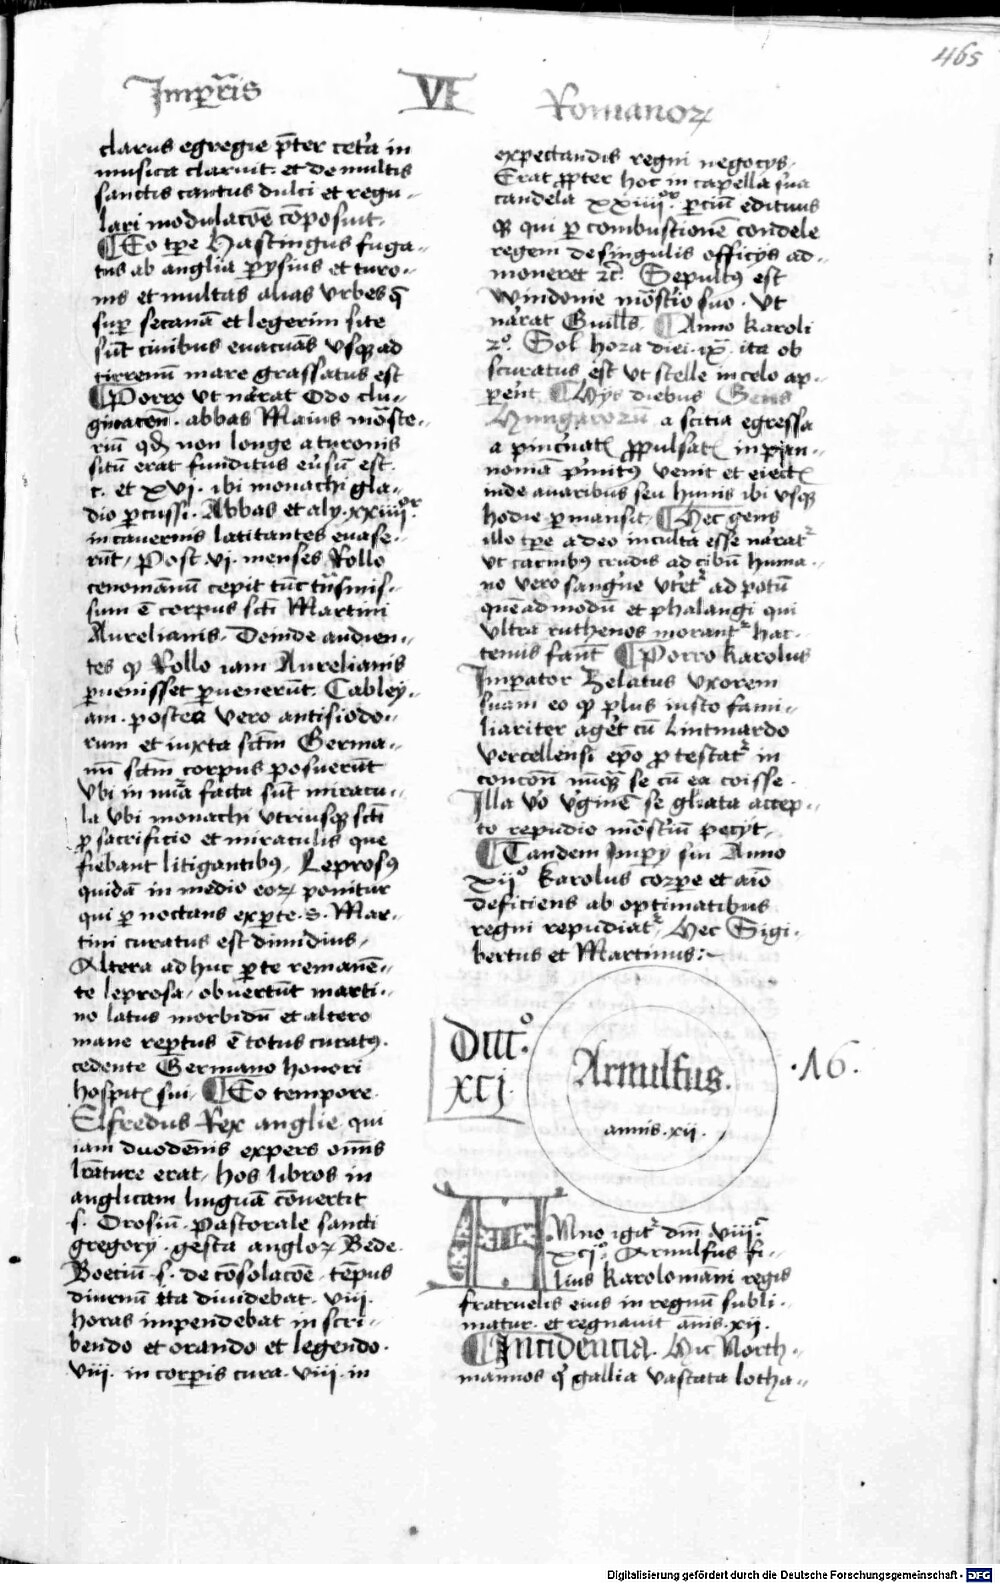 465
Imꝑr̄is VI Romanoꝝ
clarus egregie p̄ter cet'a in
musica claruit. et de multis
sanctis cantus dulci et regu-
lari modulac̄oe c̄oposuit.
¶ Eo tp̄e Hastingus fuga-
tus ab anglia ꝑysius et turo-
nis et multas alias vrbes q̄
suꝑ secanā et legerim site
sūt ciuibus euacuās vsqꝫ ad
tirrenum mare grassatus est
¶ Porro vt narat Odo clu-
giacen̄. abbas Maius mōste-
riū qđ non longe a turonis
sitū erat funditus eu'sum est.
c. et xvj. ibi monachi gla-
dio ꝑcussi. Abbas et alij xxiiii or
in cauernis latitantes euase-
rūt, Post .vj. menses Rollo
cenomānum cepit tūc tn̄smis-
sum ē corpus sc̄ti Martini
Aurelianis. Deinde audien-
tes ꝙ Rollo iam Aurelianis
ꝑuenisset ꝑuenerūt. Cabley-
am. postea vero antisiodo-
rum et iuxta sc̄tm Germa-
nū sc̄tm corpus posuerūt
vbi in nūa facta sūt miracu-
la vbi monachi vtriusqꝫ sc̄ti
ꝑ sacrificio et miraculis que
fiebant litigantibꝰ, Leprosꝰ
quidā in medio eoꝝ ponitur
qui ꝑ noctans ex ꝑte .S. Mar-
tini curatus est dimidius,
Altera ad huc ꝑte remanē-
te leprosa, obuertūt marti-
no latus morbidū et altero
mane reꝑtus ē totus curatꝰ.
cedente Germano honori
hospitꝭ sui, ¶ Eo tempore
Elfredus Rex anglie qui
iam duodēnis expers om̄is
lr̄ature erat, hos libros in
anglicam linguā cōuertit
.s. Orosiū. Pastorale sancti
gregorij. gesta angloꝝ Bede.
Boetiū .s. de cōsolac̄oe, tēpus
diurnū ita diuidebat. viij.
horas impendebat in scri-
bendo et orando et legendo.
viij. in corꝑis cura. viij. in
expectandis regni negocijs,
Erat ꝓpter hoc in capella sua
candela xxiiii or ꝑciū edituus
qꝫ qui ꝑ combustionē candele
regem de singulis officijs ad-
moneret ⁊c̄. Sepultꝰ est
windonie mōst'io suo. vt
narat Guill's. ¶ Anno karoli
2º. Sol hora diei .ix. ita ob
scuratus est vt stelle in celo ap-
per'ent ¶ Hijs diebus Gens
Hungarorū a scitia egressa
a pincūatꝭ ꝓpulsatꝭ in pan-
nomā p'mitꝰ venit et eiectꝭ
inde auaribus seu hunis ibi vsqꝫ
hodie ꝑmansit, ¶ Hec gens
illo tp̄e adeo inculta esse narat'
vt carnibus crudis ad cibū huma-
no vero sangu'ne vtet' ad potū
quēadmodū et phalangi qui
vltra ruthenos morant' hac-
tenus faūt ¶ Porro karolus
Imperator Zelatus vxorem
suam eo ꝙ plus iusto fami-
liariter aget cū lintuardo
vercellensi ep̄o ꝓtestat' in
concōne nūqꝫ se cū ea coisse.
Illa v'o v'ginē se gl'iata accep-
to repudio mōst'iū pecijt,
¶ Tandem Impij sui Anno
xijº karolus corꝑe et aīo
deficiens ab optimatibus
regni repudiat', Hec Sigi-
bertus et Martinus:~
DIIIº.
XCJ
Arnulfus.
annis .xii.
.16.
ANno igit' dn̄i viiij.c
xcjº. Arnulfus fi-
lius karolomāni regis
fratruelis eius in regnū subli-
matur. et regnauit ānis .xij.
¶ Incidencia. Hic North-
mannos qʳ gallia vastata lotha-
Digitalisierung gefördert durch die Deutsche Forschungsgemeinschaft - DFG